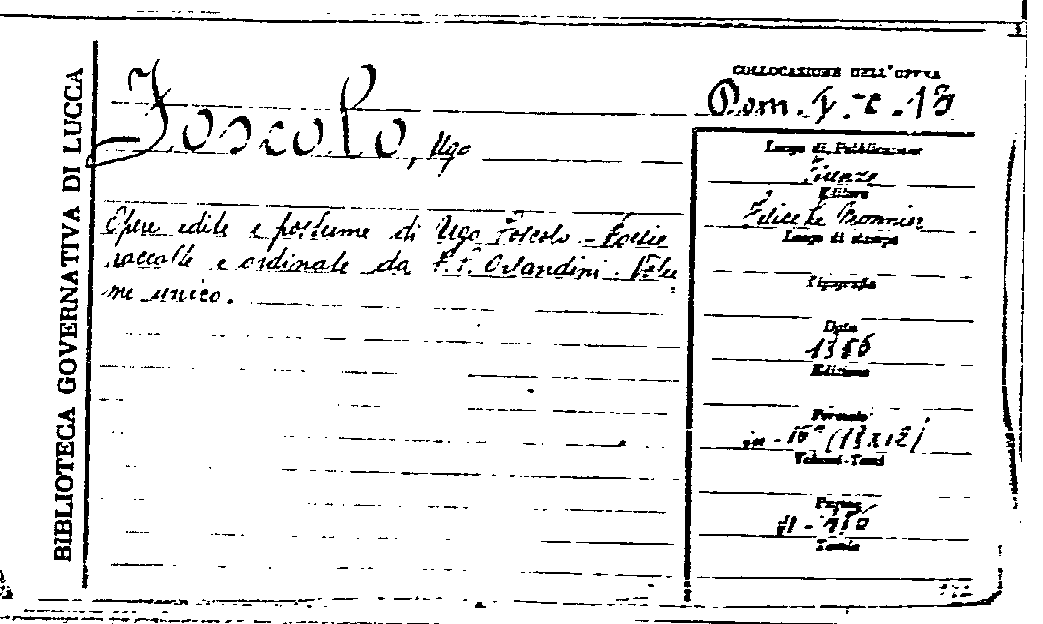 BIBLIOTECA GOVERNATIVA DI LUCCA
Foscolo, Ugo
Opere edite e postume di Ugo Foscolo - Poesie
raccolte e ordinate da F. S. Orlandini. Volu
me unico.
COLLOCAZIONE DELL'OPERA
Rom.
Luogo di Pubblicazione
Firenze
Editore
Felice Le Monnier
Luogo di stampa
Tipografia
Data
Edizione
Formato
in-16°
Volumi-Tomi
Pagine
Tavole